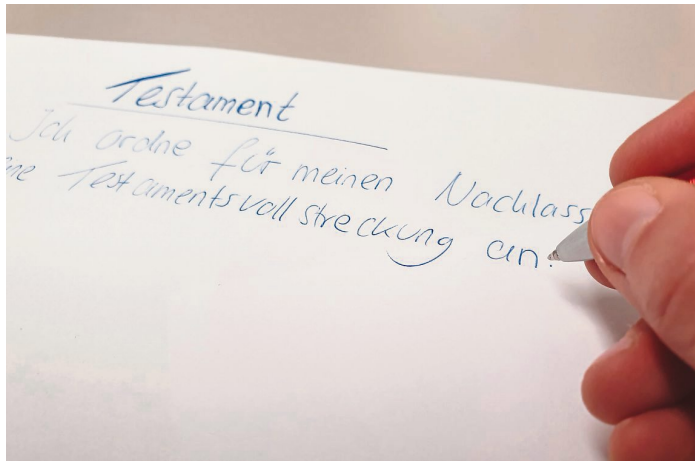 Testament
Ich ordne für meinen Nachlass
ine Testamentsvollstreckung an.